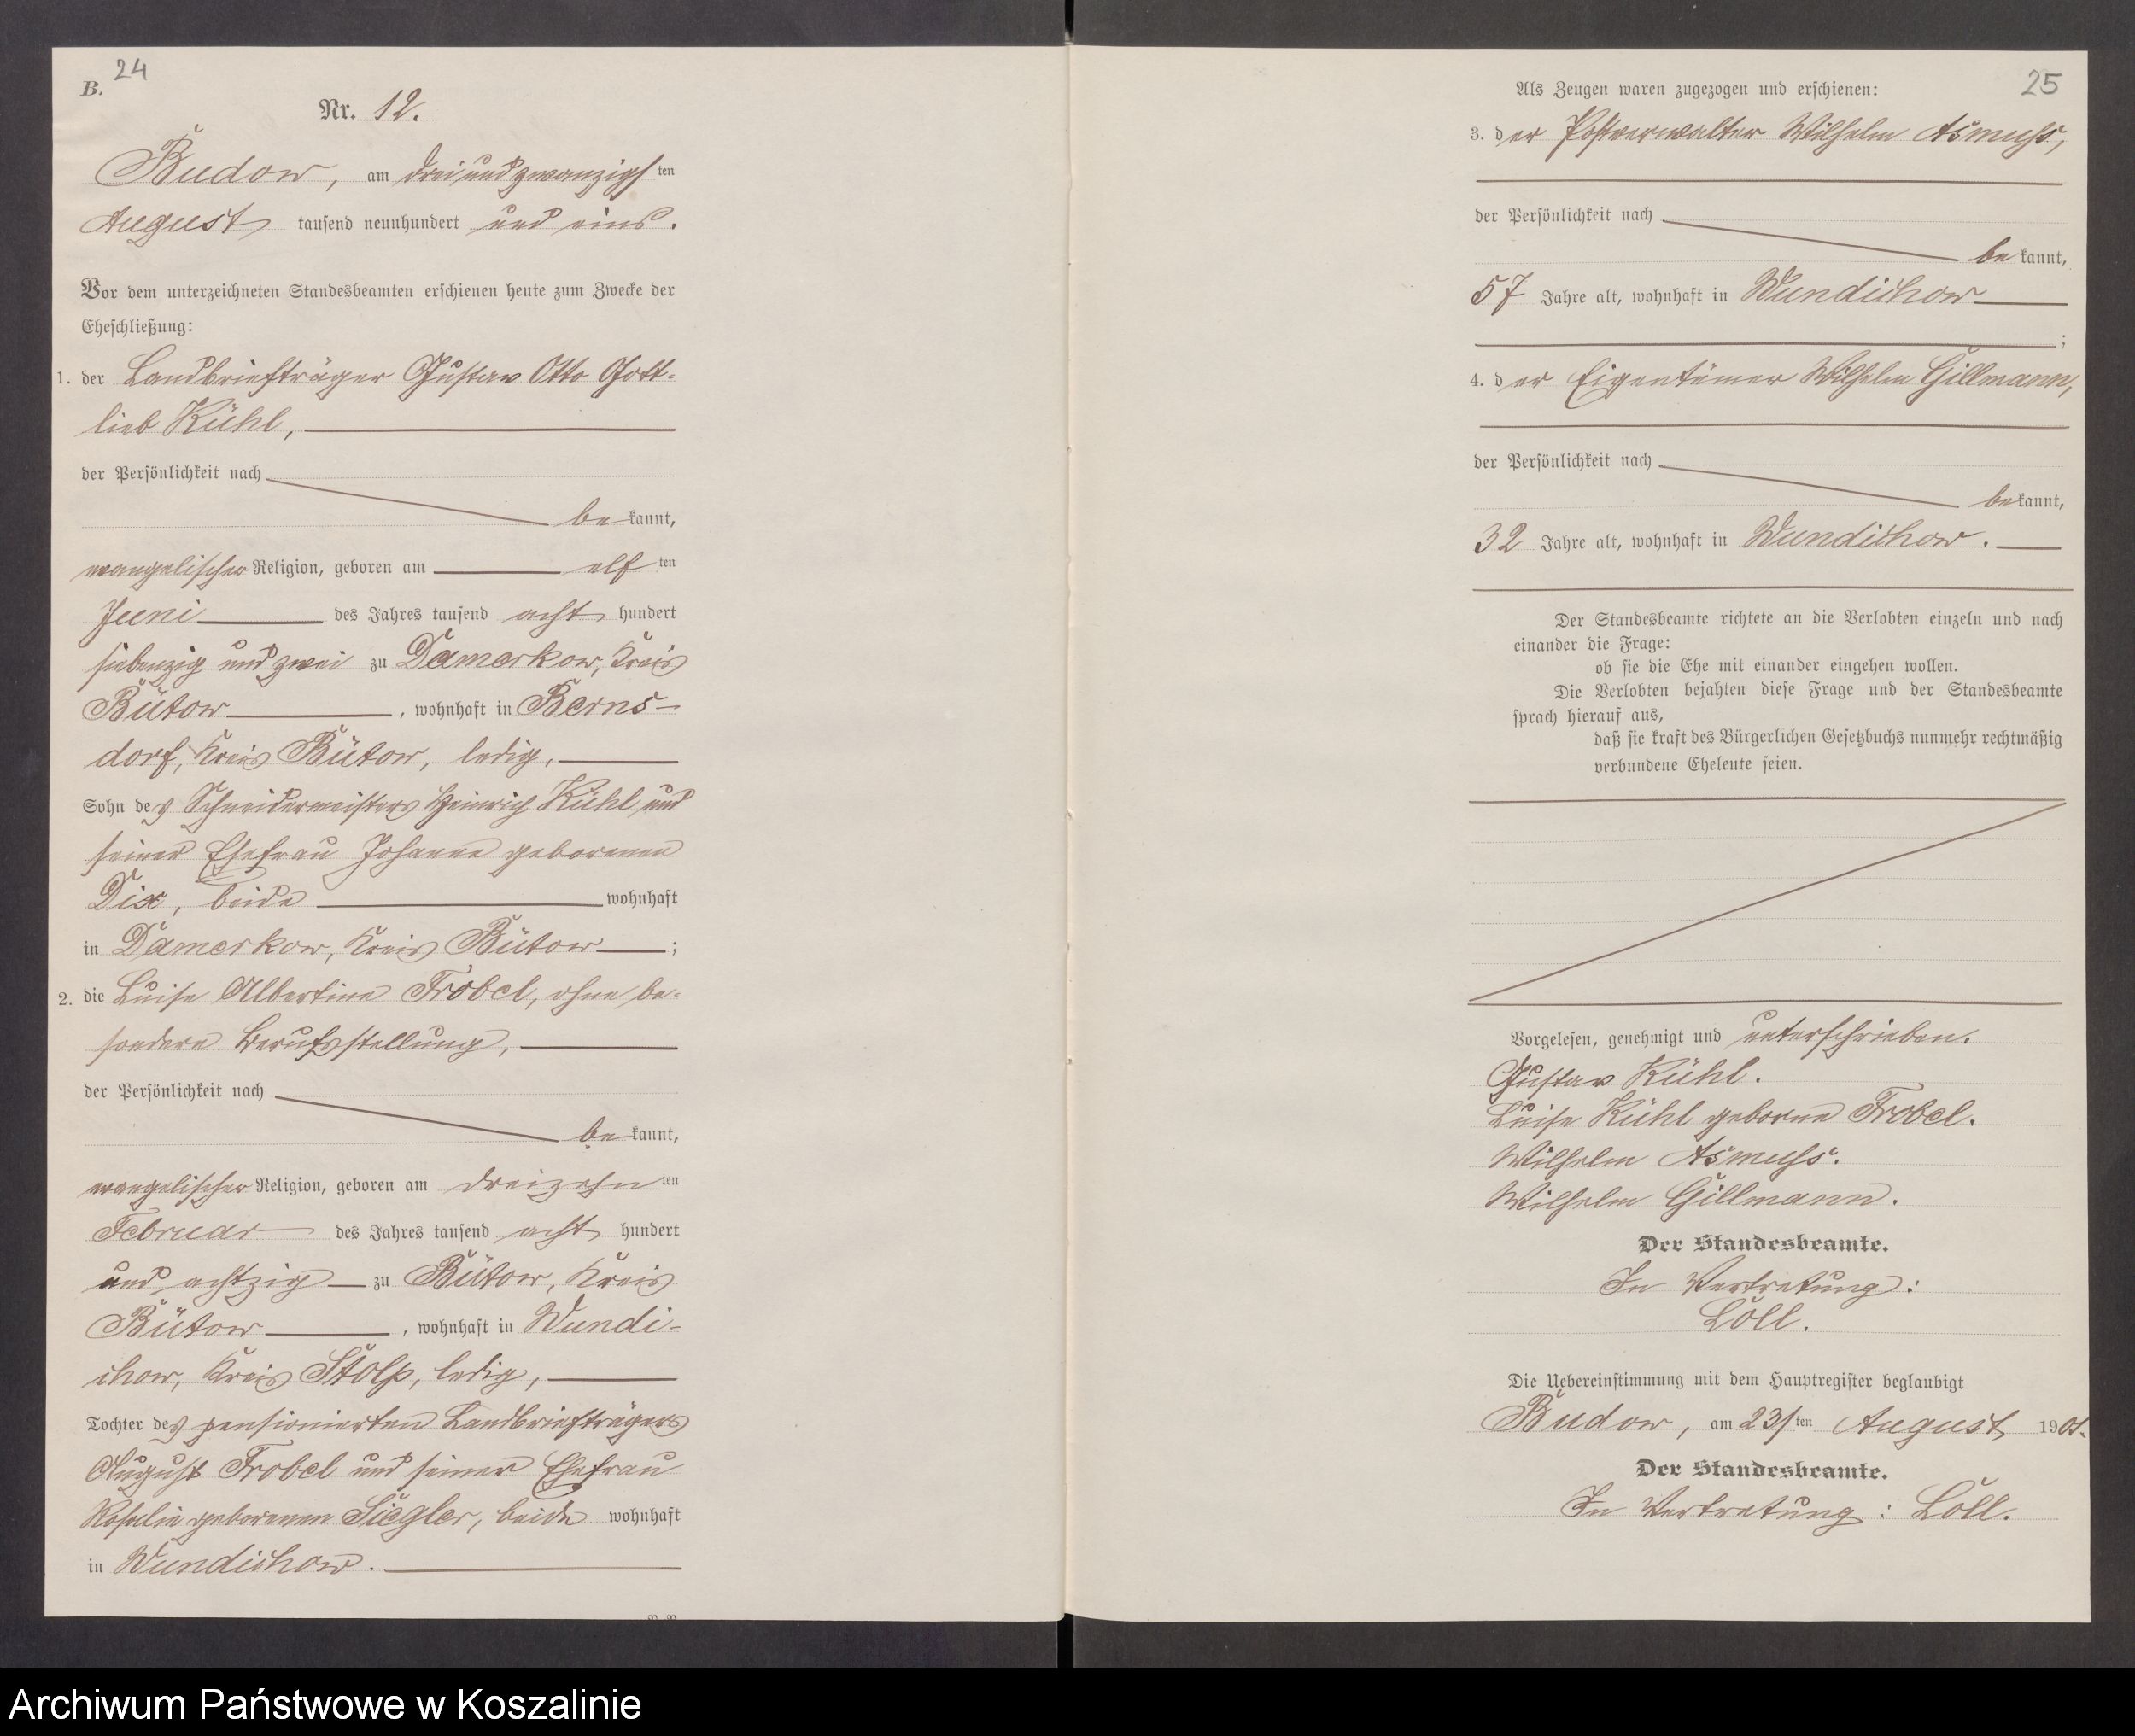 24
B.
Nr. 12.
Budow, am dreiundzwanzigsten
August tausend neunhundert und eins.
Vor dem unterzeichneten Standesbeamten erschienen heute zum Zwecke der
Eheschließung:
1. der Landbriefträger Gustav Otto Gott-
lieb Kühl,
der Persönlichkeit nach
bekannt,
evangelischer Religion, geboren am elften
Juni des Jahres tausend acht hundert
siebenzig und zwei zu Damerkow, Kreis
Bütow, wohnhaft in Berns-
dorf, Kreis Bütow, ledig,
Sohn des Schneidermeisters Heinrich Kühl und
seiner Ehefrau Johanne geborenen
Dix, beide wohnhaft
in Damerkow, Kreis Bütow;
2. die Luise Albertine Trobel, ohne be-
sondere Berufsstellung,
der Persönlichkeit nach
bekannt,
evangelischer Religion, geboren am dreizehnten
Februar des Jahres tausend acht hundert
und achtzig zu Bütow, Kreis
Bütow, wohnhaft in Wundi-
chow, Kreis Stolp, ledig,
Tochter des pensionierten Landbriefträgers
August Trobel und seiner Ehefrau
Rosalie geborenen Siegler, beide wohnhaft
in Wundichow.
25
Als Zeugen waren zugezogen und erschienen:
3. der Postverwalter Wilhelm Asmuss,
der Persönlichkeit nach
bekannt,
57 Jahre alt, wohnhaft in Wundichow
;
4. der Eigentümer Wilhelm Gillmann,
der Persönlichkeit nach
bekannt,
32 Jahre alt, wohnhaft in Wundichow.
Der Standesbeamte richtete an die Verlobten einzeln und nach
einander die Frage:
ob sie die Ehe mit einander eingehen wollen.
Die Verlobten bejahten diese Frage und der Standesbeamte
sprach hierauf aus,
daß sie kraft des Bürgerlichen Gesetzbuchs nunmehr rechtmäßig
verbundene Eheleute seien.
Vorgelesen, genehmigt und unterschrieben.
Gustav Kühl.
Luise Kühl geborne Trobel.
Wilhelm Asmuss.
Wilhelm Gillmann.
Der Standesbeamte.
In Vertretung:
Löll.
Die Uebereinstimmung mit dem Hauptregister beglaubigt
Budow, am 23sten August 1901.
Der Standesbeamte.
In Vertretung: Löll.
Archiwum Państwowe w Koszalinie